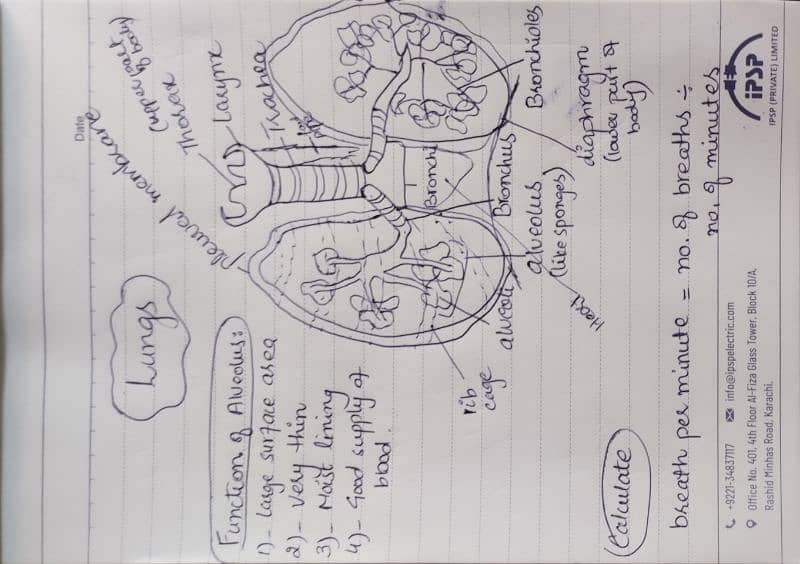 Date
Lungs
Function of Alveolus:
1)- Large surface area
2)- Very thin
3)- Moist lining
4)- Good supply of
blood.
pleural membrane
Thorax
(upper part
of body)
Larynx
Trachea
Bronchi
Bronchioles
diaphragm
(lower part of
body)
Bronchus
alveolus
(like sponges)
alveoli
rib
cage
Calculate
breath per minute = no. of breaths ÷
no. of minutes
+9221-34837117 info@ipspelectric.com
Office No. 401, 4th Floor Al-Fiza Glass Tower, Block 10/A,
Rashid Minhas Road, Karachi.
iPSP
IPSP (PRIVATE) LIMITED